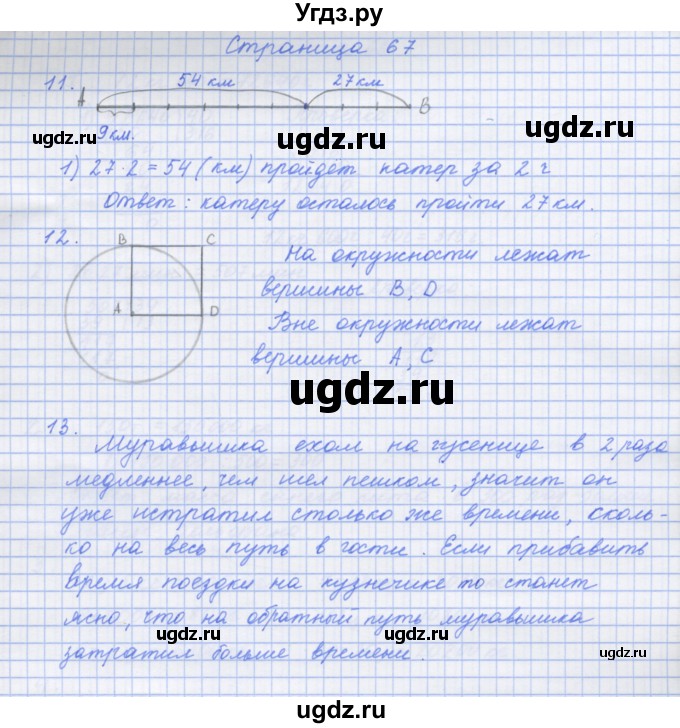 Угдз.ру
Страница 67
11. 54 км 27 км
А В
9 км.
1) 27·2=54 (км) пройдёт катер за 2 ч
Ответ: катеру осталось пройти 27 км.
12. В С На окружности лежат
вершины В, D
А D Вне окружности лежат
вершины А, С
13.
Муравьишка ехал на гусенице в 2 раза
медленнее, чем шел пешком, значит он
уже истратил столько же времени, сколь-
ко на весь путь в гости. Если прибавить
время поездки на кузнечике то станет
ясно, что на обратный путь муравьишка
затратил больше времени.
ugdz.ru
ugdz.ru
ugdz.ru
ugdz.ru
ugdz.ru
ugdz.ru
ugdz.ru
ugdz.ru
ugdz.ru
ugdz.ru